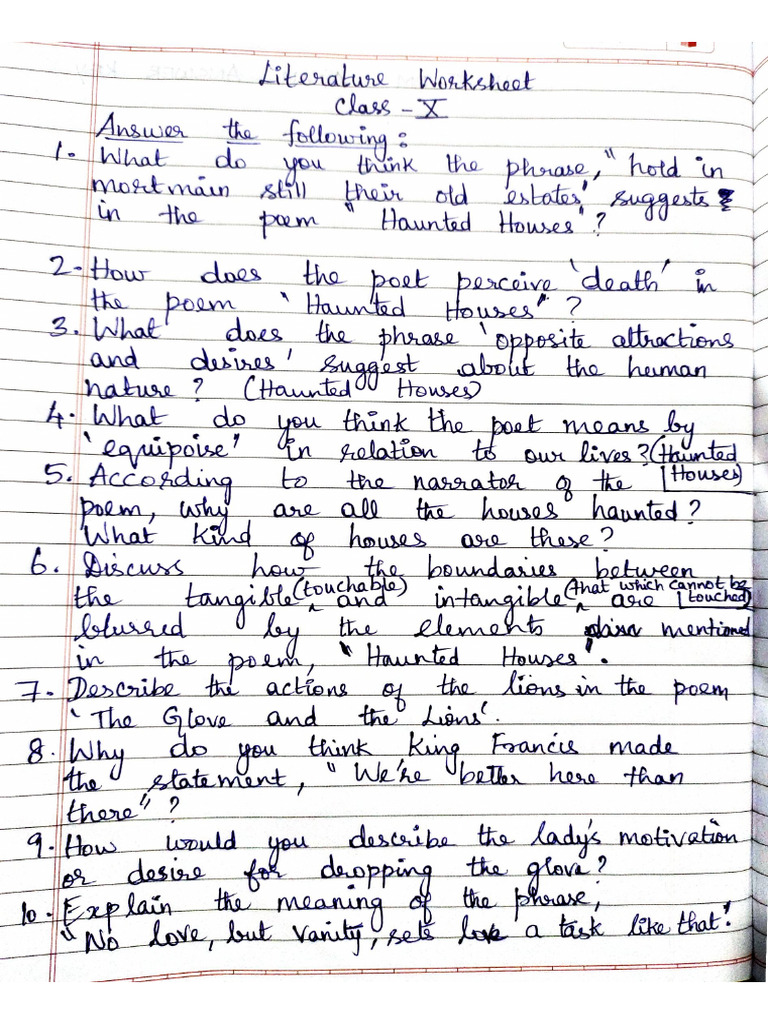 Literature Worksheet
Class - X
Answer the following:
1. What do you think the phrase, "hold in
mortmain still their old estates' suggests
in the poem "Haunted Houses'?
2. How does the poet perceive 'death' in
the poem "Haunted Houses"?
3. What does the phrase 'opposite attractions
and desires' suggest about the human
nature? (Haunted Houses)
4. What do you think the poet means by
'equipoise" in relation to our lives? (Haunted
Houses)
5. According to the narrator of the
poem, why are all the houses haunted?
What kind of houses are these?
6. Discuss how the boundaries between
the tangible (touchable) and intangible (that which cannot be touched) are
blurred by the elements mentioned
in the poem, "Haunted Houses".
7. Describe the actions of the lions in the poem
'The Glove and the Lions'.
8. Why do you think King Francis made
the statement, "We're better here than
there"?
9. How would you describe the lady's motivation
or desire for dropping the glove?
10. Explain the meaning of the phrase,
"No love, but vanity, sets love a task like that'.